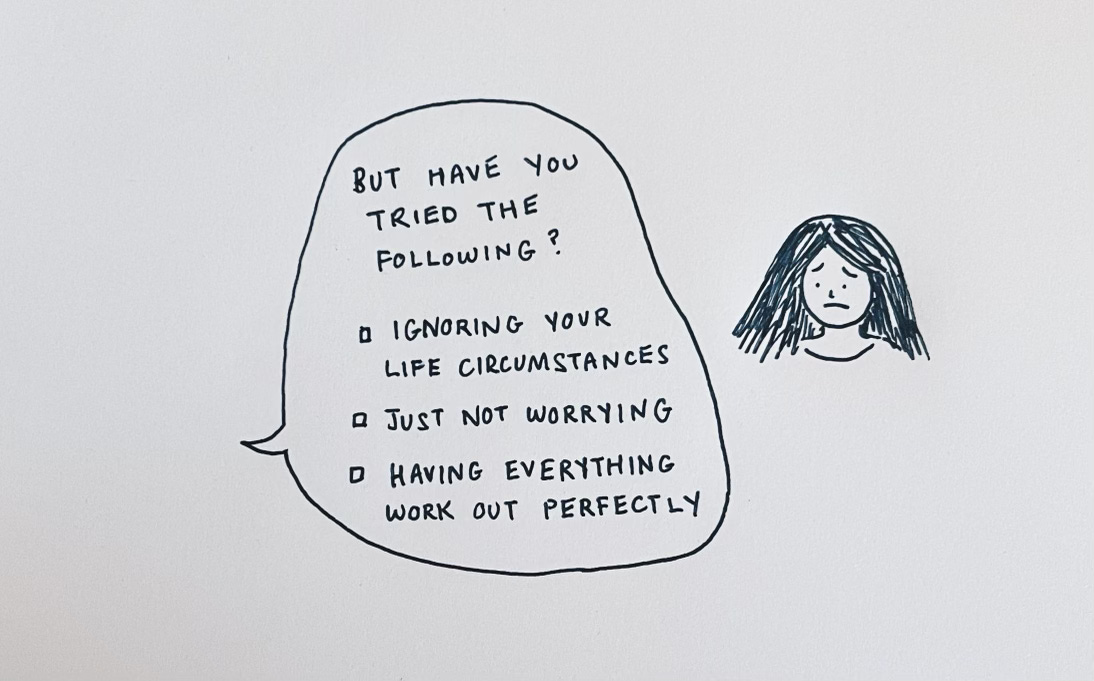 BUT HAVE YOU
TRIED THE
FOLLOWING?
IGNORING YOUR
LIFE CIRCUMSTANCES
JUST NOT WORRYING
HAVING EVERYTHING
WORK OUT PERFECTLY